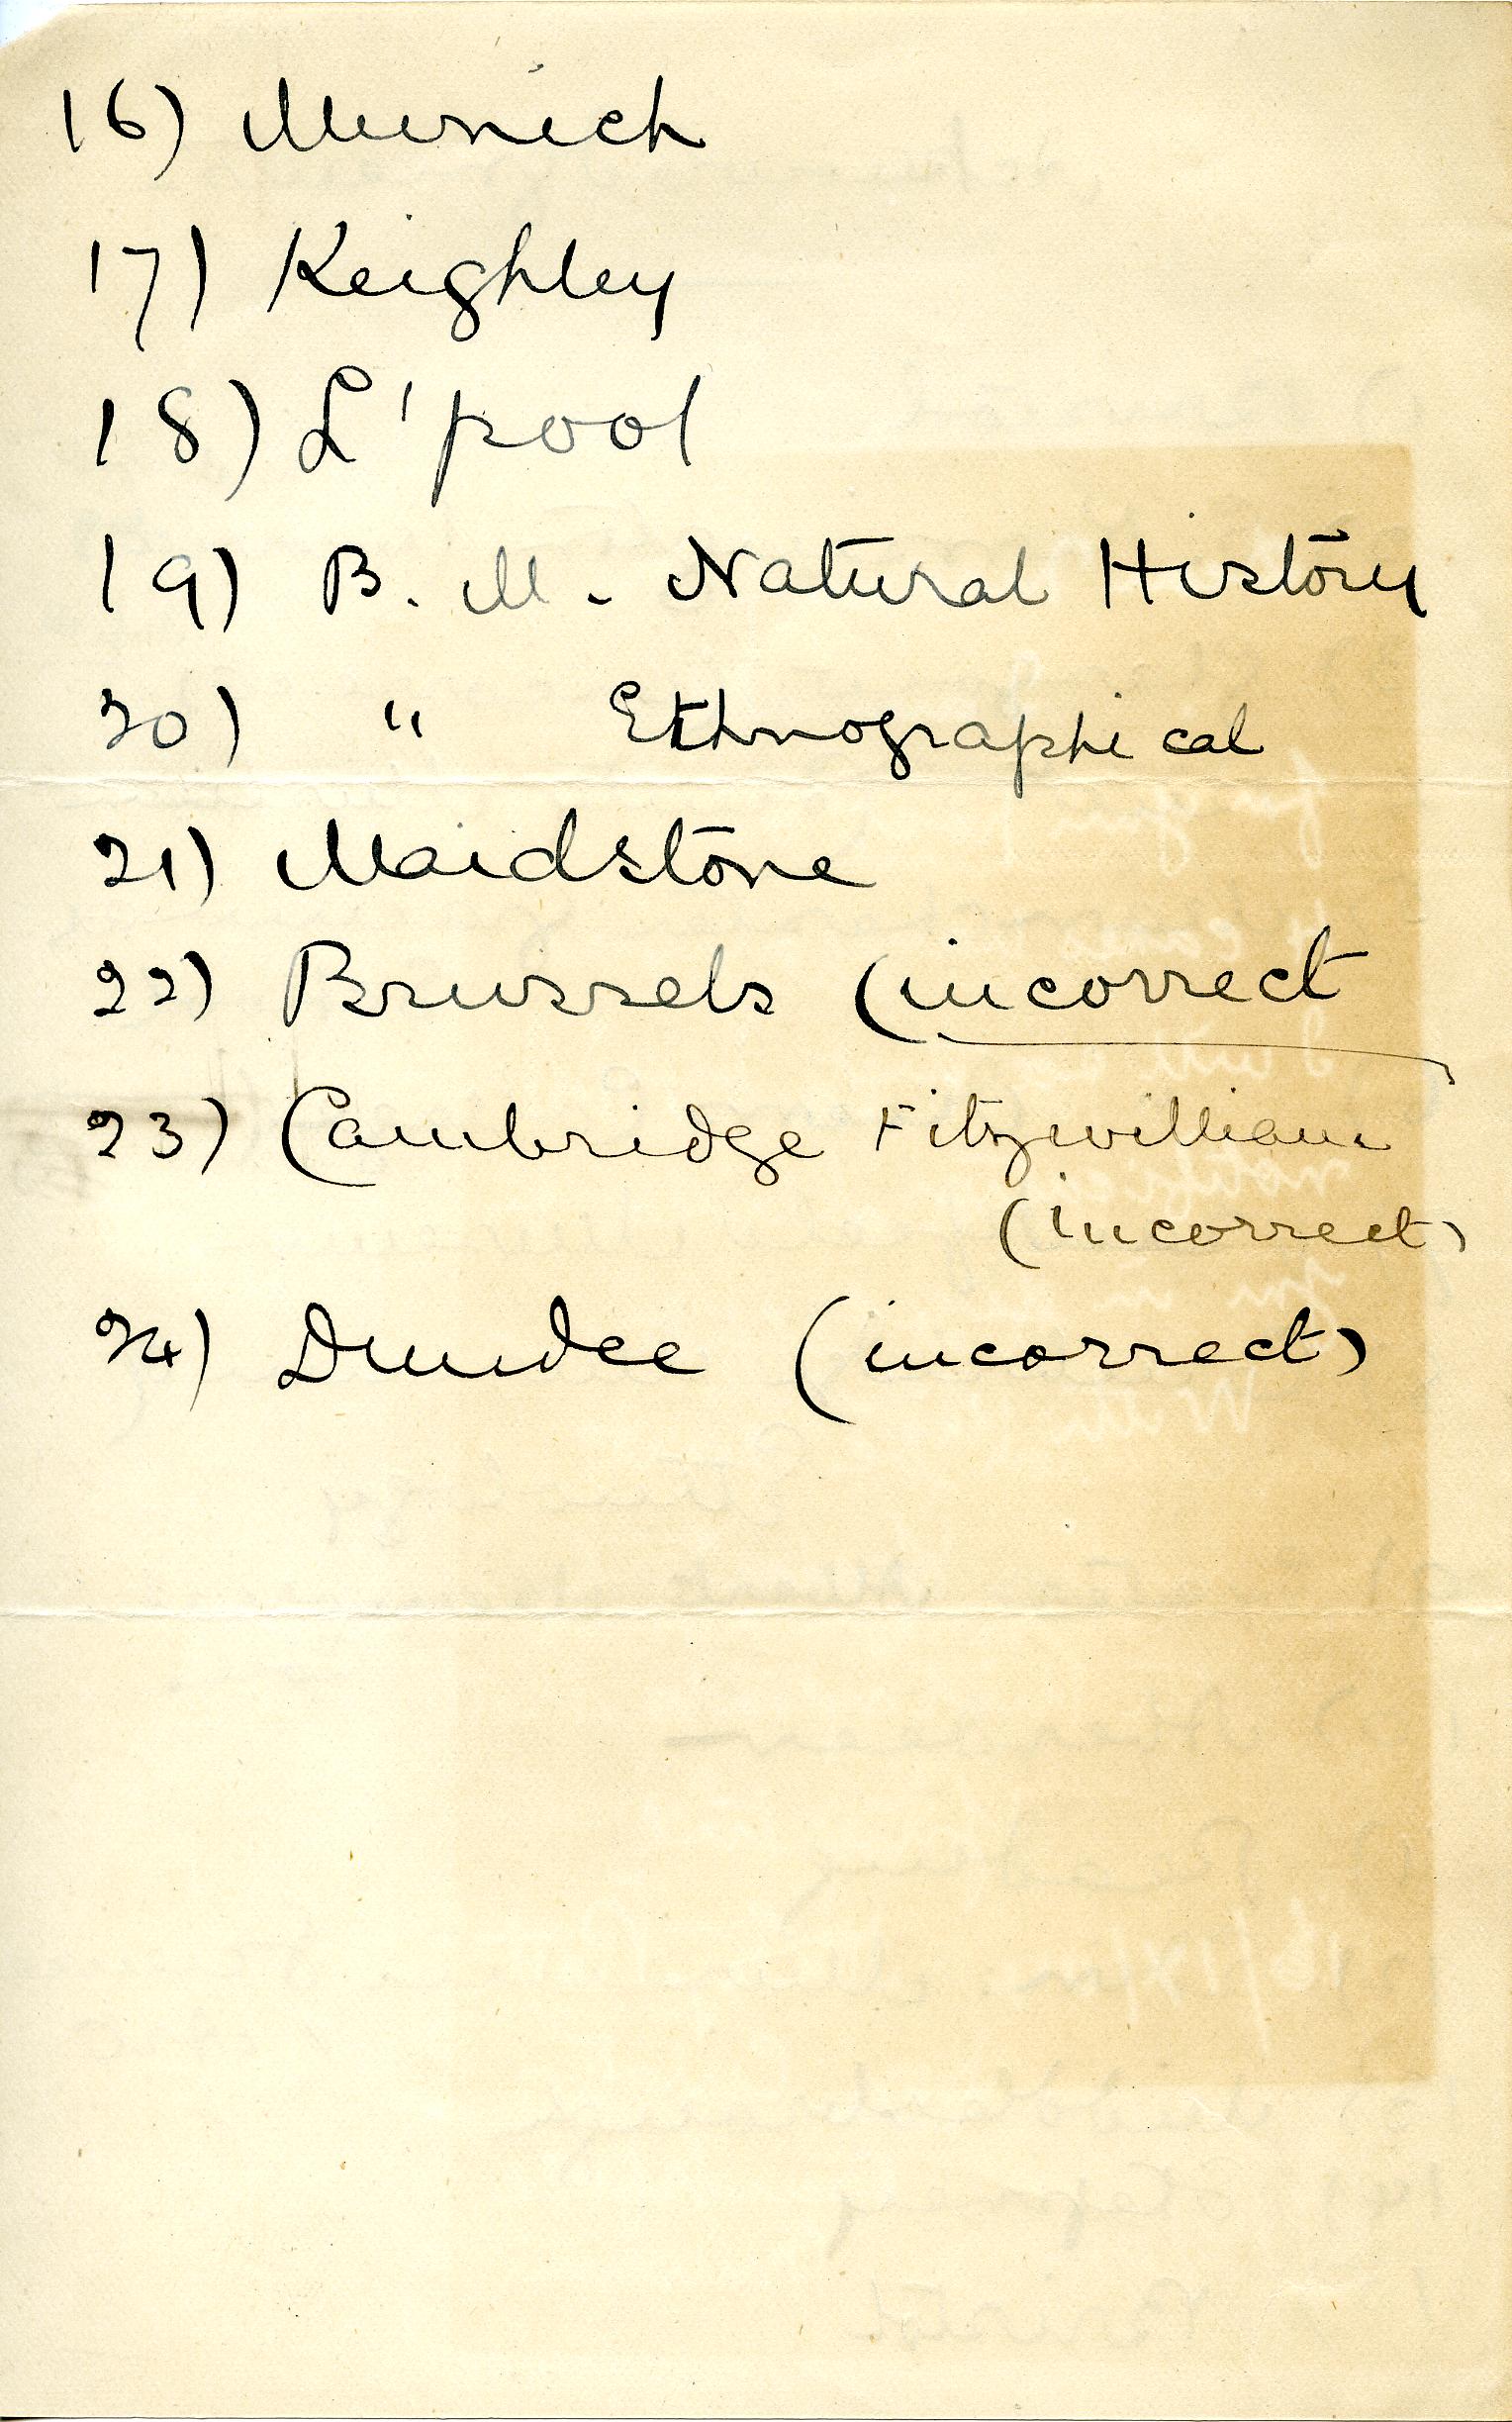 16) Munich
17) Keighley
18) L'pool
19) B. M. Natural History
20) " Ethnographical
21) Maidstone
22) Brussels (incorrect)
23) Cambridge Fitzwilliam
(incorrect)
24) Dundee (incorrect)